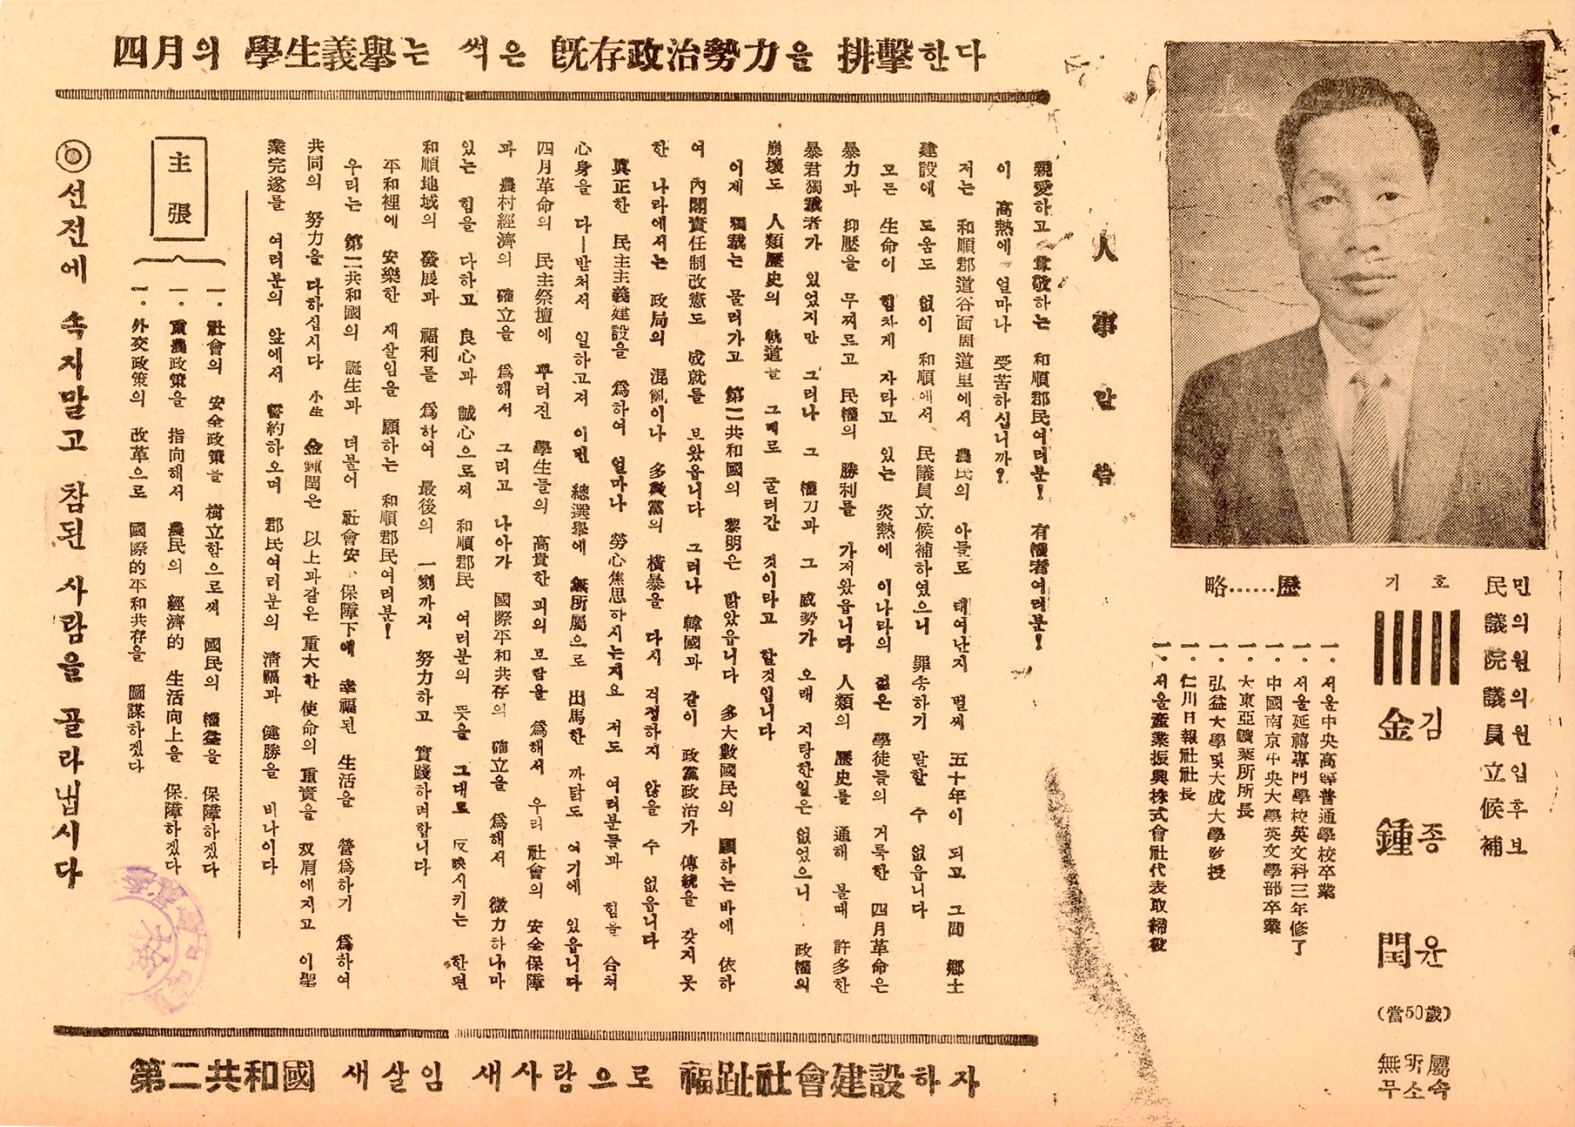 四月의 學生義擧는 썩은 旣存政治勢力을 排擊한다
민의원의원입후보
民議院議員立候補
기호
김종윤
金鍾閏
(當50歲)
無所屬
무소속
略……歷
一. 서울中央高等普通學校卒業
一. 서울延禧專門學校英文科三年修了
一. 中國南京中央大學英文學部卒業
一. 大東亞鑛業所所長
一. 弘益大學및大成大學敎授
一. 仁川日報社社長
一. 서울産業振興株式會社代表取締役
人事말씀
親愛하고 尊敬하는 和順郡民여러분! 有權者여러분!
이 高熱에 얼마나 受苦하십니까?
저는 和順郡道谷面周道里에서 農民의 아들로 태여난지 벌써 五十年이 되고 그間 鄕土
建設에 도움도 없이 和順에서 民議員立候補하였으니 罪송하기 말할 수 없읍니다
모든 生命이 힘차게 자라고 있는 炎熱에 이나라의 젊은 學徒들의 거룩한 四月革命은
暴力과 抑壓을 무찌르고 民權의 勝利를 가저왔읍니다 人類의 歷史를 通해 볼때 許多한
暴君獨裁者가 있었지만 그러나 그 權力과 그 威勢가 오래 지탕한일은 없었으니 政權의
崩壞도 人類歷史의 軌道를 그대로 굴러간 것이라고 할것입니다
이제 獨裁는 물러가고 第二共和國의 黎明은 밝았읍니다 多大數國民의 願하는바에 依하
여 內閣責任制改憲도 成就를 보왔읍니다 그러나 韓國과 같이 政黨政治가 傳統을 갖지 못
한 나라에서는 政局의 混亂이나 多數黨의 橫暴을 다시 걱정하지 않을 수 없읍니다
眞正한 民主主義建設을 爲하여 얼마나 勞心焦思하시는지요 저도 여러분들과 힘을 合쳐
心身을 다—받처서 일하고저 이번 總選擧에 無所屬으로 出馬한 까닭도 여기에 있읍니다
四月革命의 民主祭壇에 뿌려진 學生들의 高貴한 피의 보람을 爲해서 우리 社會의 安全保障
과 農村經濟의 確立을 爲해서 그리고 나아가 國際平和共存의 確立을 爲해서 微力하나마
있는 힘을 다하고 良心과 誠心으로써 和順郡民 여러분의 뜻을 그대로 反映시키는 한편
和順地域의 發展과 福利를 爲하여 最後의 一刻까지 努力하고 實踐하려합니다
平和裡에 安樂한 새살임을 願하는 和順郡民여러분!
우리는 第二共和國의 誕生과 더불어 社會安 保障下에 幸福된 生活을 營爲하기 爲하여
共同의 努力을 다하십시다 小生 金鍾閏은 以上과같은 重大한 使命의 重責을 双肩에지고 이聖
業完遂를 여러분의 앞에서 誓約하오며 郡民여러분의 淸福과 健勝을 비나이다
主張
一. 社會의 安全政策을 樹立함으로써 國民의 權益을 保障하겠다
一. 重農政策을 指向해서 農民의 經濟的 生活向上을 保障하겠다
一. 外交政策의 改革으로 國際的平和共存을 圖謀하겠다
◎선전에 속지말고 참된 사람을 골라냅시다
第二共和國 새살임 새사람으로 福祉社會建設하자